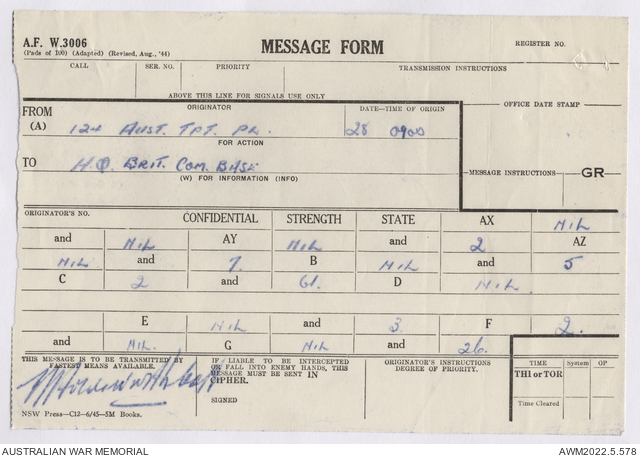 A.F. W.3006
(Pads of 100) (Adapted) (Revised, Aug., '44)
MESSAGE FORM
REGISTER NO.
CALL SER. NO. PRIORITY TRANSMISSION INSTRUCTIONS
ABOVE THIS LINE FOR SIGNALS USE ONLY
FROM ORIGINATOR DATE—TIME OF ORIGIN OFFICE DATE STAMP
(A) 124 AUST. TPT. PL. 28 0900
FOR ACTION
TO H.Q. BRIT. COM. BASE
(W) FOR INFORMATION (INFO) MESSAGE INSTRUCTIONS GR
ORIGINATOR'S NO. CONFIDENTIAL STRENGTH STATE AX NIL
and NIL AY NIL and 2 AZ
NIL and 7. B NIL and 5
C 2 and 61. D NIL.
E NIL and 3. F 2.
and NIL. G NIL and 26.
THIS MESSAGE IS TO BE TRANSMITTED BY FASTEST MEANS AVAILABLE.
IF LIABLE TO BE INTERCEPTED OR FALL INTO ENEMY HANDS, THIS MESSAGE MUST BE SENT IN CIPHER.
SIGNED
ORIGINATOR'S INSTRUCTIONS DEGREE OF PRIORITY.
TIME System OP
THI or TOR
Time Cleared
NSW Press—C12—6/45—5M Books.
AUSTRALIAN WAR MEMORIAL AWM2022.5.578